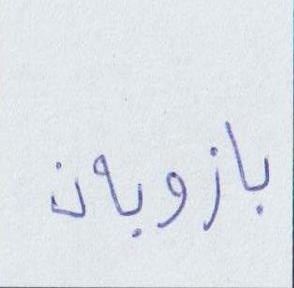 بازویان